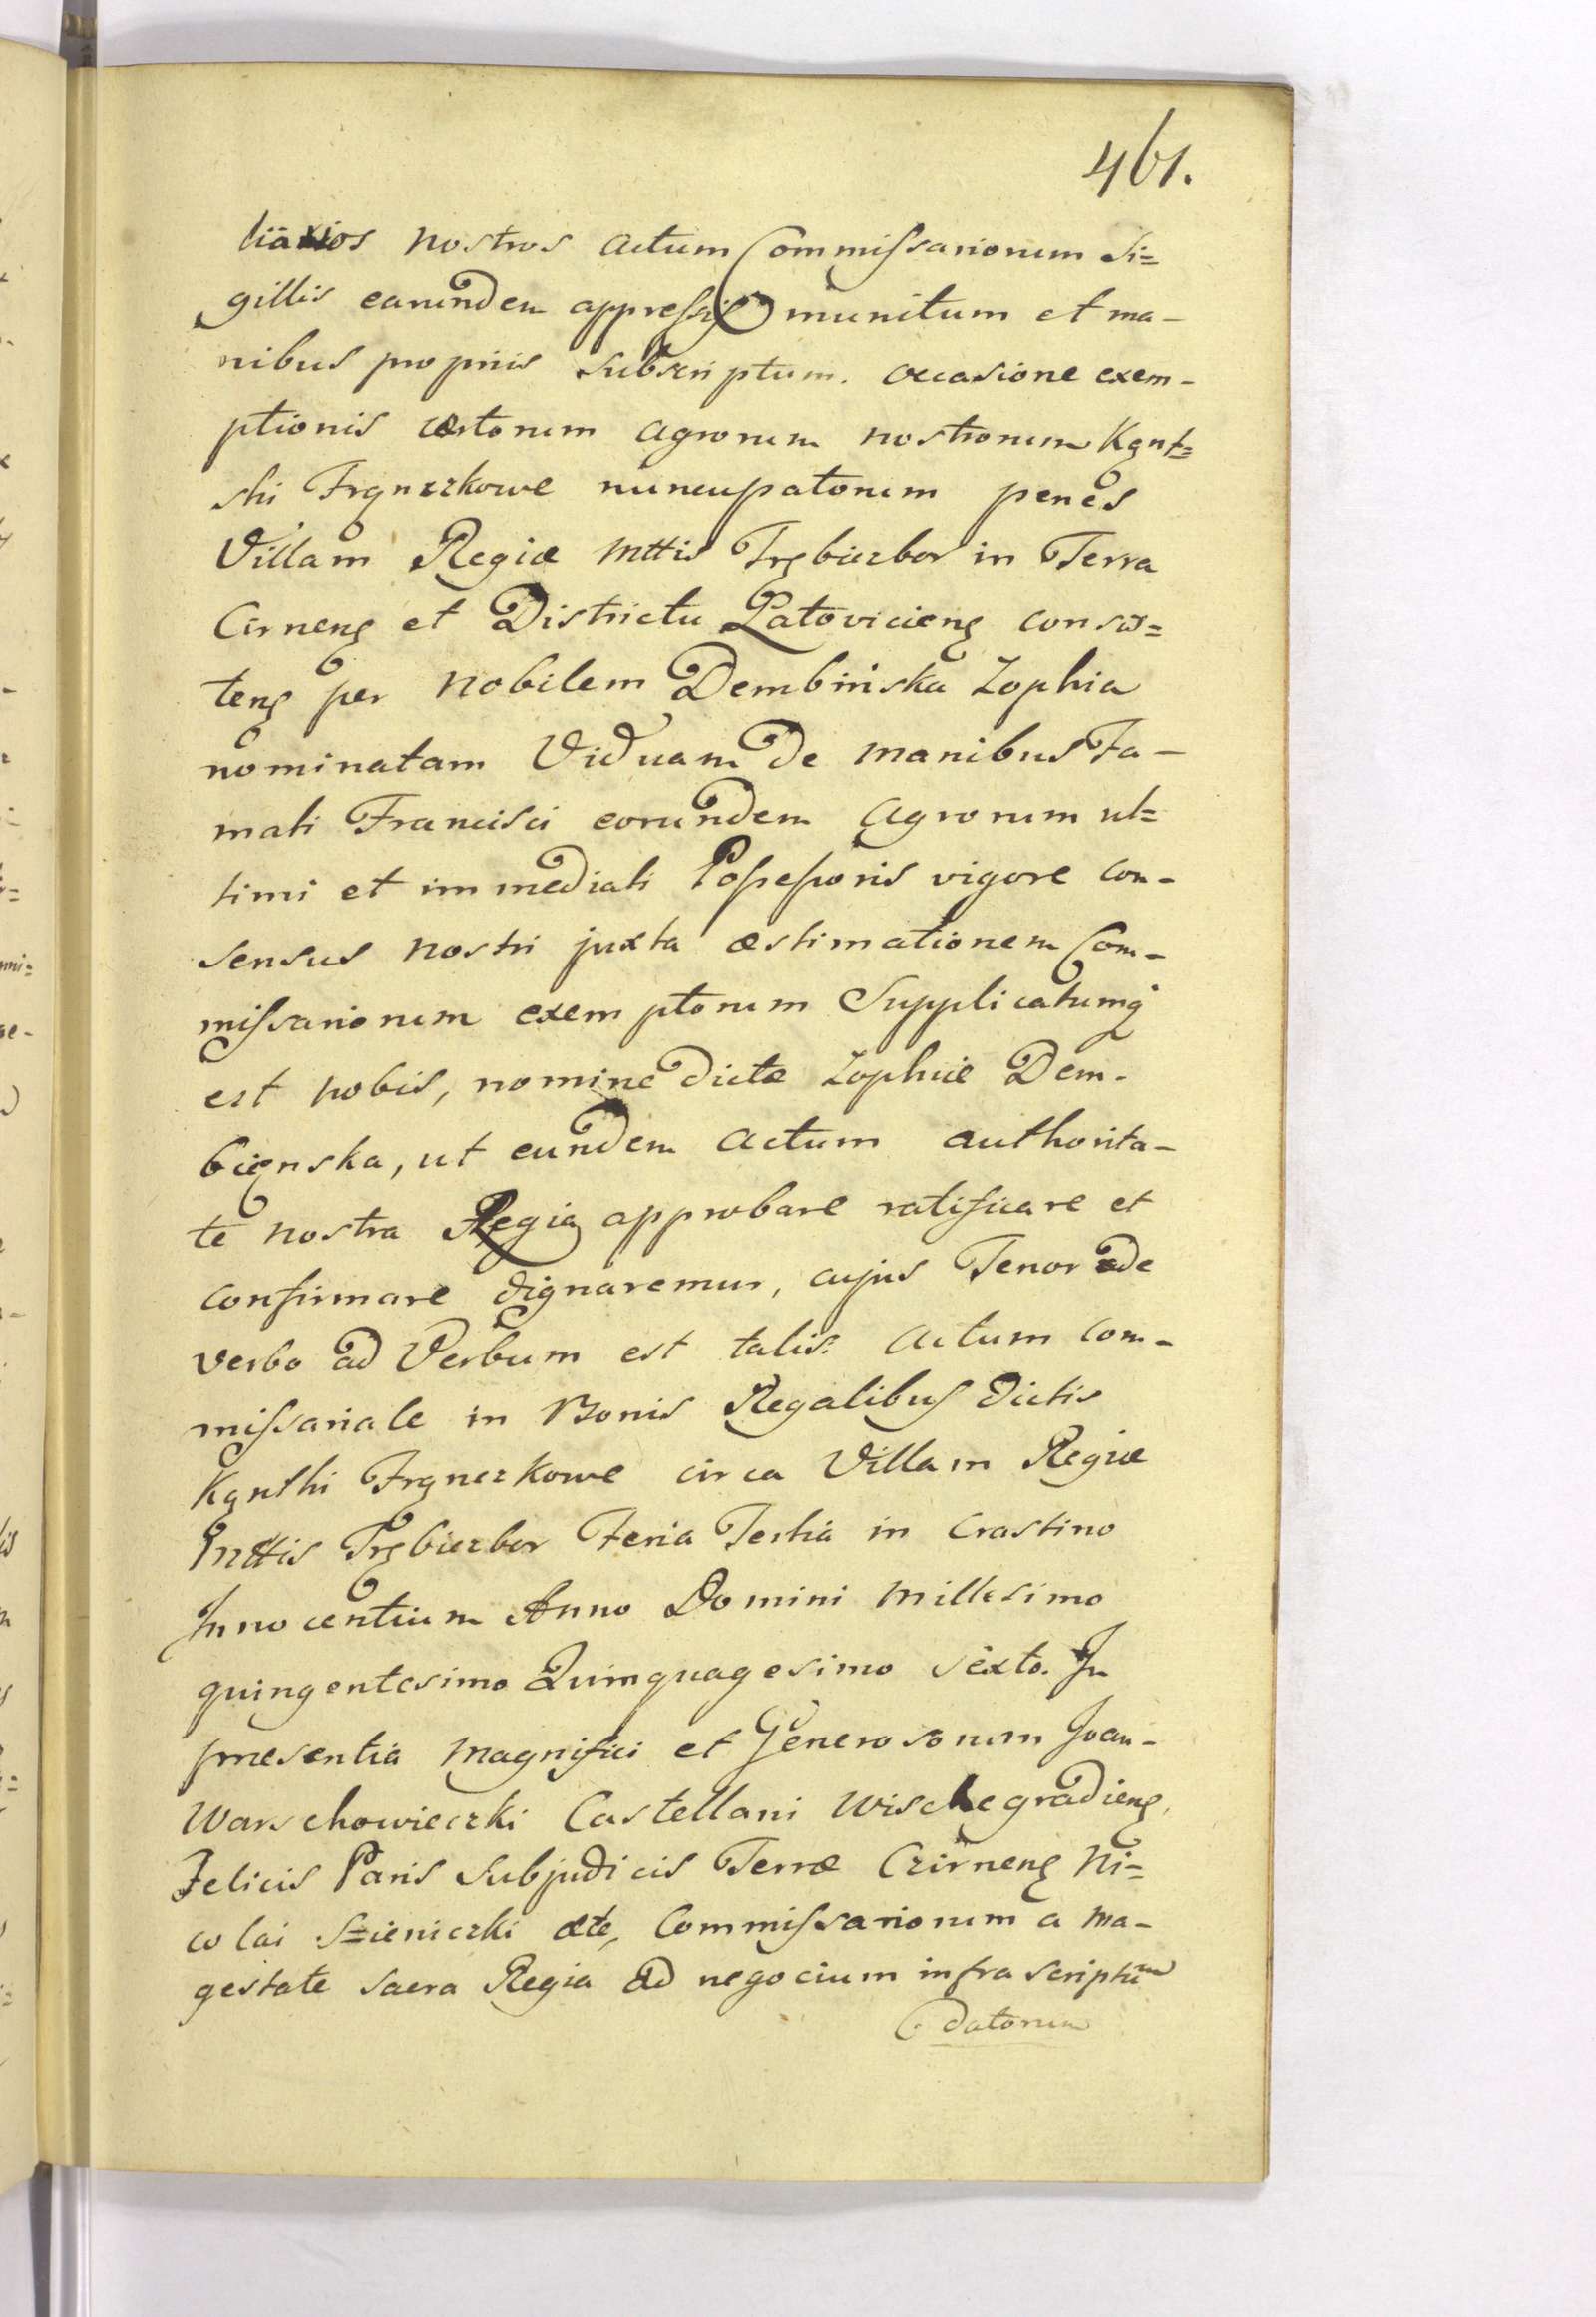 461.
liarios nostros actum Commissariorum Si=
gillis earundem appressis munitum et ma-
nibus propriis subscriptum. occasione exem-
ptionis certorum agrorum nostrorum Kąnt=
ski Frąnczkowe nuncupatorum penes
Villam Regiæ Mttis Trębiczbor in Terra
Cirneng et Districtu Latovicieng consis=
teng per Nobilem Dembinska Zophia
nominatam Viduam de manibus Fa-
mati Francisci eorundem agrorum ul=
timi et immediati Possessoris vigore con-
sensus nostri juxta æstimationem Com-
missariorum exemptorum Supplicatumq
est nobis, nomine dictæ Zophiæ Dem-
bięnska, ut eundem actum authorita-
te nostra Regia approbare ratificare et
confirmare dignaremur, cujus Tenor de
verbo ad Verbum est talis: Actum com-
missariale in Bonis Regalibus dictis
Kąnthi Frąnczkowe circa Villam Regiæ
Mttis Trębiczbor Feria Tertia in Crastino
Innocentium Anno Domini Millesimo
quingentesimo Quinquagesimo sexto. In
præsentia Magnifici et Generosorum Joan-
Warschowieczki Castellani Wischegradieng,
Felicis Paris Subjudicis Terræ Czirneng Ni=
colai Szieniczki etc, Commissariorum a Ma-
gestate Sacra Regia ad negocium infra scriptum
datorum